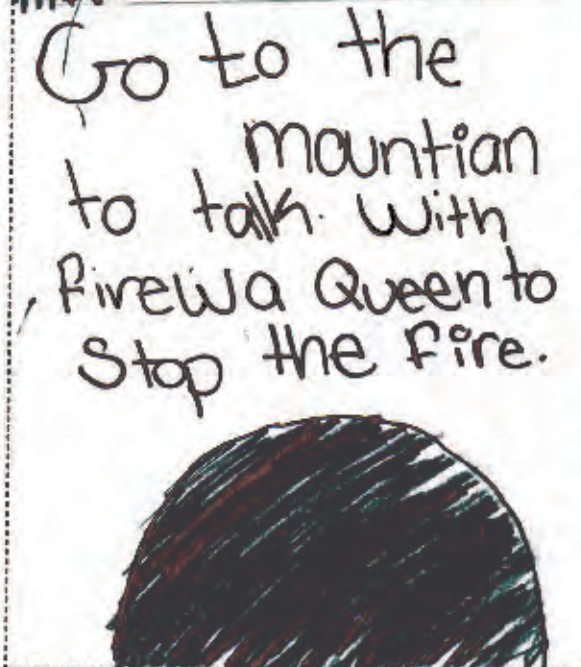 Go to the
mountian
to talk with
firewa Queen to
Stop the fire.